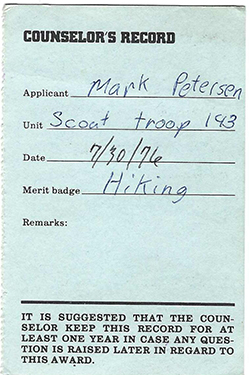 COUNSELOR'S RECORD
Applicant Mark Petersen
Unit Scout troop 143
Date 7/30/76
Merit badge Hiking
Remarks:
IT IS SUGGESTED THAT THE COUN-
SELOR KEEP THIS RECORD FOR AT
LEAST ONE YEAR IN CASE ANY QUES-
TION IS RAISED LATER IN REGARD TO
THIS AWARD.